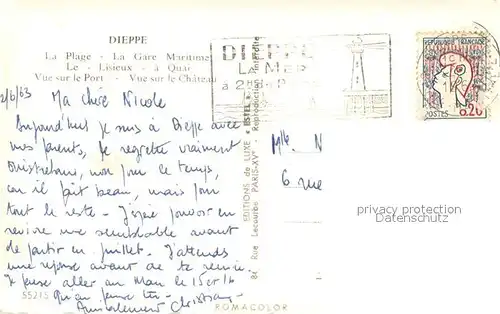 DIEPPE
La Plage - La Gare Maritime
Le - Lisieux - à Quai
Vue sur le Port - Vue sur le Château
DIEPPE
LA MER
REPUBLIQUE FRANCAISE
POSTES 0,20
2/6/63 Ma chère Nicole
Aujourd'hui je suis à Dieppe avec
mes parents, Je regrette vraiment
Ouistreham, non pour le temps,
car il fait beau, mais pour
tout le reste - J'espère pouvoir en
revivre une semblable avant
de partir en juillet. J'attends
une réponse avant de te
Je pense aller au Man le 15 et 16
qu'en penses tu -
Amicalement Christiane
EDITIONS de LUXE « ESTEL »
84 Rue Lecourbe PARIS-XVe - Reproduction interdite
Mlle N
6 rue
privacy protection
55215
ROMACOLOR